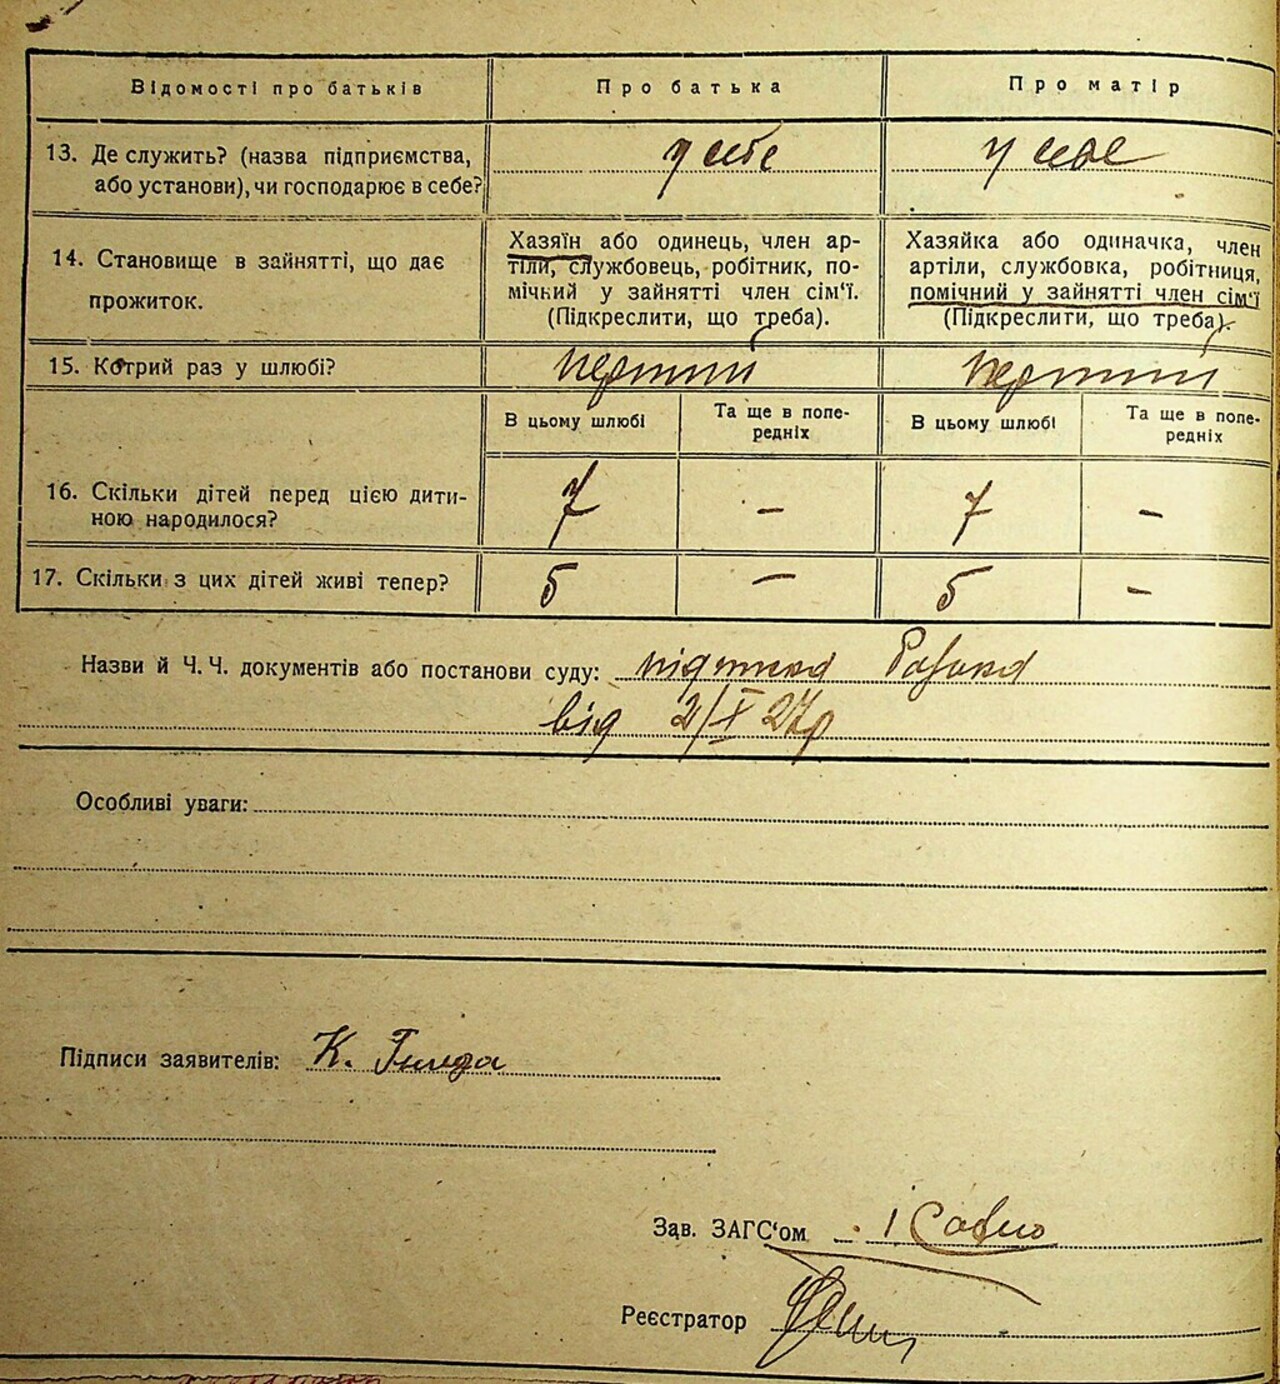 Відомості про батьків Про батька Про матір
13. Де служить? (назва підприємства, або установи), чи господарює в себе? у себе у себе
14. Становище в зайнятті, що дає прожиток.
Хазяїн або одинець, член ар-
тіли, службовець, робітник, по-
мічний у зайнятті член сім'ї.
(Підкреслити, що треба).
Хазяйка або одиначка, член
артіли, службовка, робітниця,
помічний у зайнятті член сім'ї
(Підкреслити, що треба).
15. Котрий раз у шлюбі? перший перший
В цьому шлюбі Та ще в попе-
редніх В цьому шлюбі Та ще в попе-
редніх
16. Скільки дітей перед цією дити-
ною народилося? 7 – 7 –
17. Скільки з цих дітей живі тепер? 5 – 5 –
Назви й Ч. Ч. документів або постанови суду:
від 2/X 27р
Особливі уваги:
Підписи заявителів: К.
Зав. ЗАГС'ом
Реєстратор